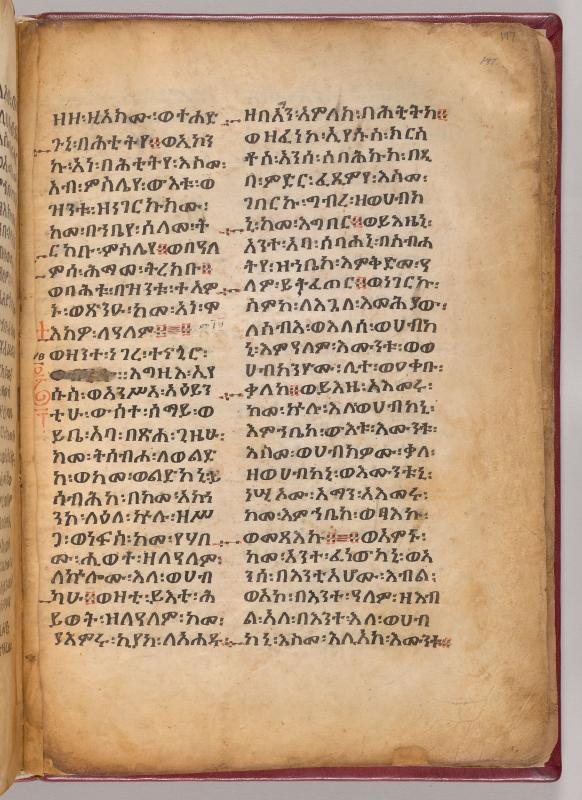 ዘዘ፡ዚአክሙ፡ወተሐድ
ጉኒ፡በሕቲትየ።ወአኮን
ኩ፡አነ፡በሕቲትየ፡እስመ፡
አብ፡ምስሌየ፡ውእቱ፡ወ
ዝንቱ፡ዘነገርኩክሙ፡
ከመ፡በኀቤየ፡ሰላመ፡ት
ርከቡ፡ምስሌየ።ወበዓለ
ምሰ፡ሕማመ፡ትረክቡ።
ወበሕቱ፡በዝንቱ፡ተአም
ኑ፡ወጽንዑ፡ከመ፡አነ፡ሞ
እክዎ፡ለዓለም።
ወዘንተ፡ነገረ፡ተናጊሮ፡
፡እግዚእ፡ኢየ
ሱስ፡ወአንሥአ፡አዕይን
ቲሁ፡ውስተ፡ሰማይ፡ወ
ይቤ፡አባ፡በጽሐ፡ጊዜሁ፡
ከመ፡ትሰብሖ፡ለወልድ
ከ፡ወከመ፡ወልድከኒ፡ይ
ሰብሕከ፡በከመ፡አኰነ
ንከ፡ላዕለ፡ኵሉ፡ዘሥ
ጋ፡ወነፍስ፡ከመ፡የሃቦ
ሙ፡ሕይወት፡ዘለዓለም፡
ለኵሎሙ፡እለ፡ወሀብ
ካሁ።ወዛቲ፡ይእቲ፡ሕ
ይወት፡ዘለዓለም፡ከመ፡
ያእምሩ፡ኪያከ፡
147
147
ዘበአን፡አምላክ፡በሕቲትከ።
ወዘፈነከ፡ኢየሱስ፡ክርስ
ቶስ፡አንሰ፡ሰባሕኩከ፡በዲ
በ፡ምድር፡ፈጸምየ፡እስመ፡
ገበርኩ፡ግብረ፡ዘወሀብከ
ኒ፡ከመ፡እግበር።ወይእዜኒ፡
አንተ፡አባ፡ሰባሐኒ፡በስብሐ
ትየ፡ዝኀቤከ፡እምቅድመ፡ዓ
ለም፡ይትፈጠር።ወነገርኩ፡
ስምከ፡ለእጓለ፡እመሕያው፡
ለሰብእ፡ወእለሰ፡ወሀብከ
ኒ፡እምዓለም፡እሙንቱ፡ወወ
ሀብከንዮሙ፡ሊተ፡ወዐቀቡ፡
ቃለከ።ወይእዜ፡አእመሩ፡
ከመ፡ኵሉ፡እለወሀብከኒ፡
እምኀቤከ፡ውእቱ፡እሙንቱ፡
እስመ፡ወሀብክዎሙ፡ቃለ፡
ዘወሀብከኒ፡ወእሙንቱኒ፡
ነሥኡሙ፡እማን፡አእመሩ፡
ከመ፡እምኀቤከ፡ወፃእኩ፡
ወመጻእኩ።ወአምኑ፡
ከመ፡አንተ፡ፈነውከኒ፡ወአ
ንሰ፡በእንቲአሆሙ፡እብል፡
ወአኮ፡በእንተ፡ዓለም፡ዘእብ
ል፡አላ፡በእንተ፡እለ፡ወሀብ
ከኒ፡እስመ፡እሊአከ፡እሙንቱ።